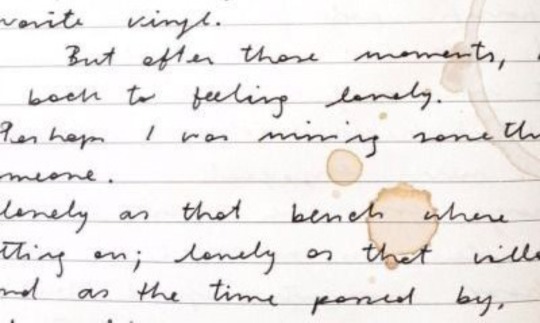 vorite vinyl.
But after those moments,
back to feeling lonely.
Perhaps I was missing someth
meone.
lonely as that bench where
tting on; lonely as that villa
nd as the time passed by,